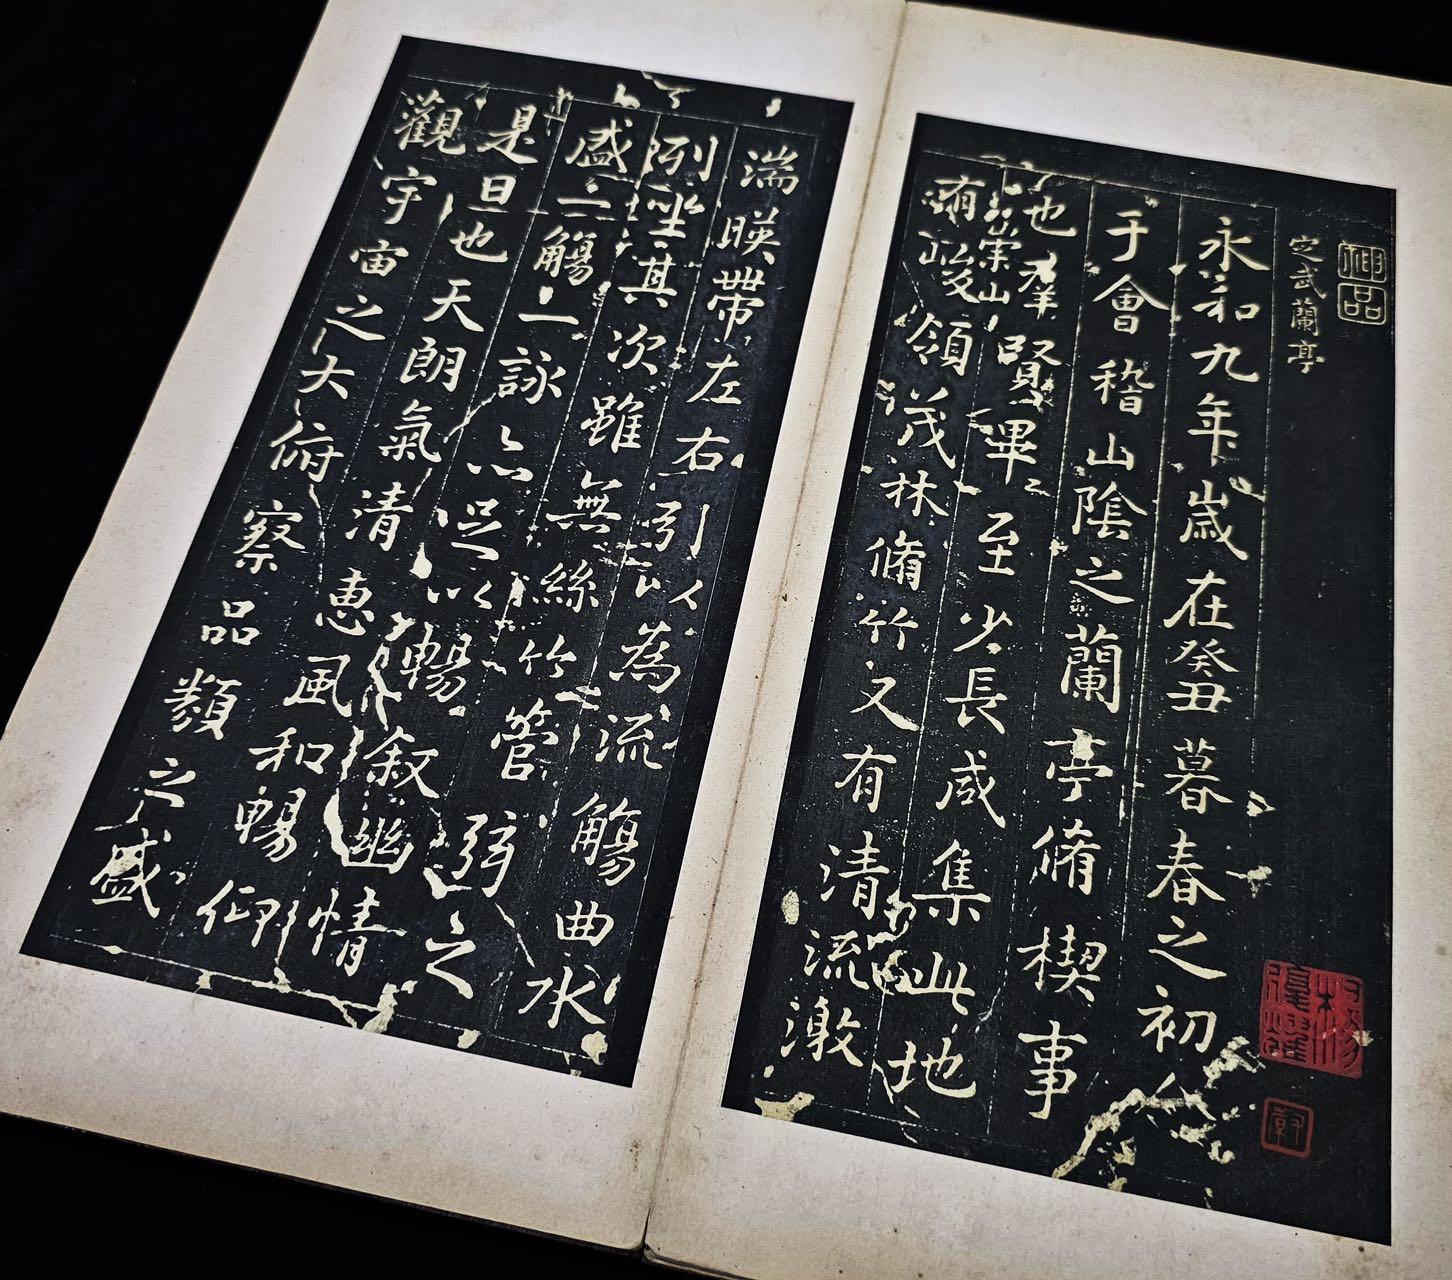 神品
定武蘭亭
永和九年歲在癸丑暮春之初
于會稽山陰之蘭亭脩稧事
也羣賢畢至少長咸集此地
崇山
有峻領茂林脩竹又有清流激
湍暎帶左右引以為流觴曲水
列坐其次雖無絲竹管弦之
盛一觴一詠亦足以暢敘幽情
是日也天朗氣清惠風和暢仰
觀宇宙之大俯察品類之盛